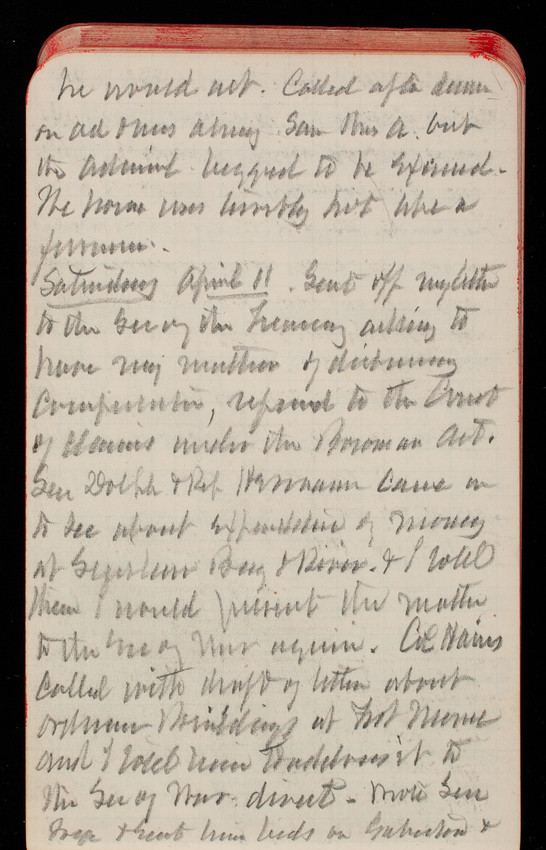 he would act. Called after dinner
on ad Ames along. Saw Mrs A. but
the Admiral begged to be excused.
The house was terribly hot like a
furnace.
Saturday April 11. Sent off my letter
to the Sec of the Treasury asking to
have my matter of disbursing
Compensation, referred to the Court
of Claims under the Bowman Act.
Sen Dolph & Rep Hermann came in
to see about expenditure of money
at Bay & River. & I told
them I would present the matter
to the Sec of War again. Col Hains
called with draft of letter about
Buildings at Fort
and I told him to address it to
the Sec of War direct. Wrote Gen
& sent him bids on Galveston &